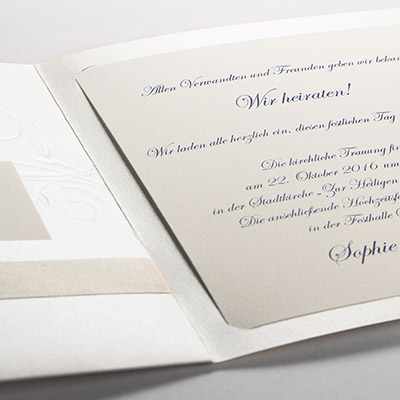 Allen Verwandten und Freunden geben wir
Wir heiraten!
Wir laden alle herzlich ein, diesen festlichen Tag
Die kirchliche Trauung
am 22. Oktober 2016 um
in der Stadtkirche „Zur Heiligen
Die anschließende
in der Festhalle
Sophie